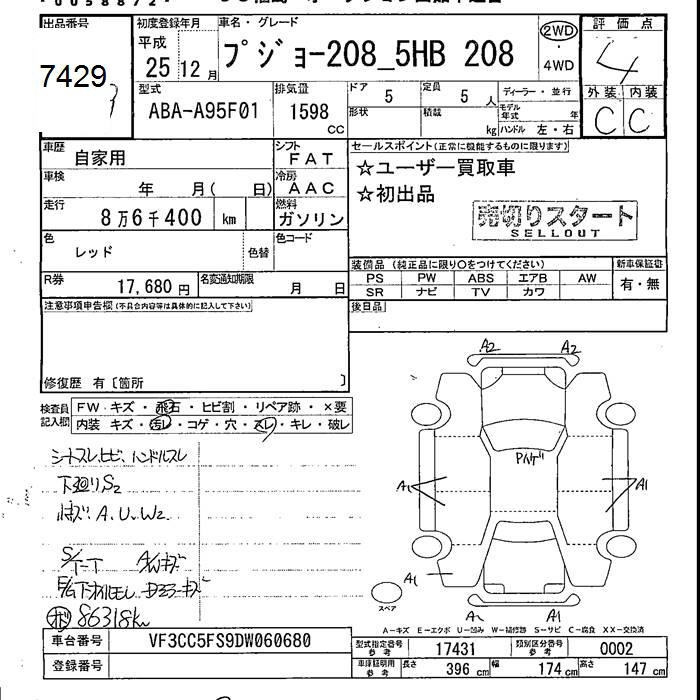 出品番号
7429
初度登録年月
平成
25 12月
車名・グレード
プジョー208_5HB 208
2WD
・
4WD
評価点
4
外装 内装
C C
型式
ABA-A95F01
排気量
1598
CC
ドア
5
定員
5 人
形状
積載
kg
ディーラー・並行
モデル年式 年
ハンドル 左・右
車歴
自家用
シフト
FAT
車検
年 月( 日)
冷房
AAC
走行
8万6千400 km
燃料
ガソリン
色
レッド
色替
色コード
R券
17,680 円
名変通知期限
月 日
セールスポイント(正常に機能するものに限ります)
☆ユーザー買取車
☆初出品
売切りスタート
SELLOUT
装備品 (純正品に限り○をつけてください)
PS PW ABS エアB AW
SR ナビ TV カワ
新車保証書
有・無
後日品
注意事項申告欄(不具合内容等は具体的に記入して下さい)
修復歴 有〔箇所 〕
検査員
記入欄
FW キズ・飛石・ヒビ割・リペア跡・×要
内装 キズ・汚レ・コゲ・穴・スレ・キレ・破レ
シートスレ、ヒビ、ハンドルスレ
下廻りS2
A.U.W2
86318km
A2 A2
A1 A1
A1
A2 A1
スペア
A-キズ E-エクボ U-凹み W-補修跡 S-サビ C-腐食 XX-交換済
車台番号
VF3CC5FS9DW060680
登録番号
型式指定番号
参考
17431
類別区分番号
参考
0002
車庫証明用
参考
長さ 396 cm 幅 174 cm 高さ 147 cm